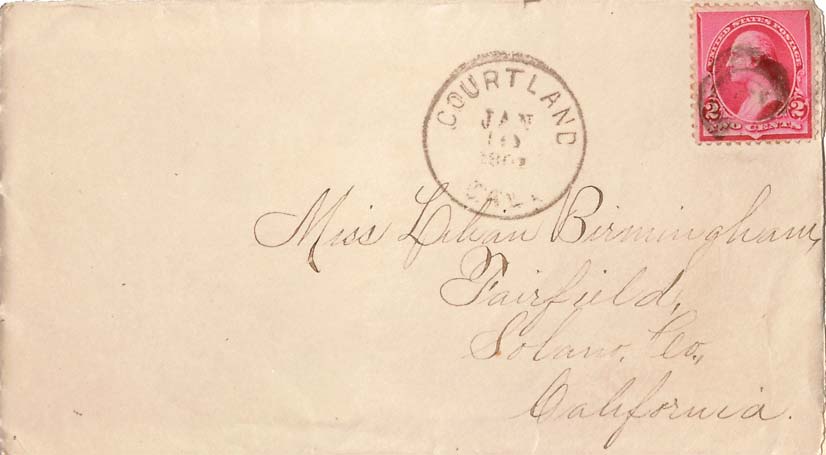 UNITED STATES POSTAGE
2 2
TWO CENTS
COURTLAND
JAN
CAL.
Miss Lilian Birmingham,
Fairfield,
Solano, Co.,
California.